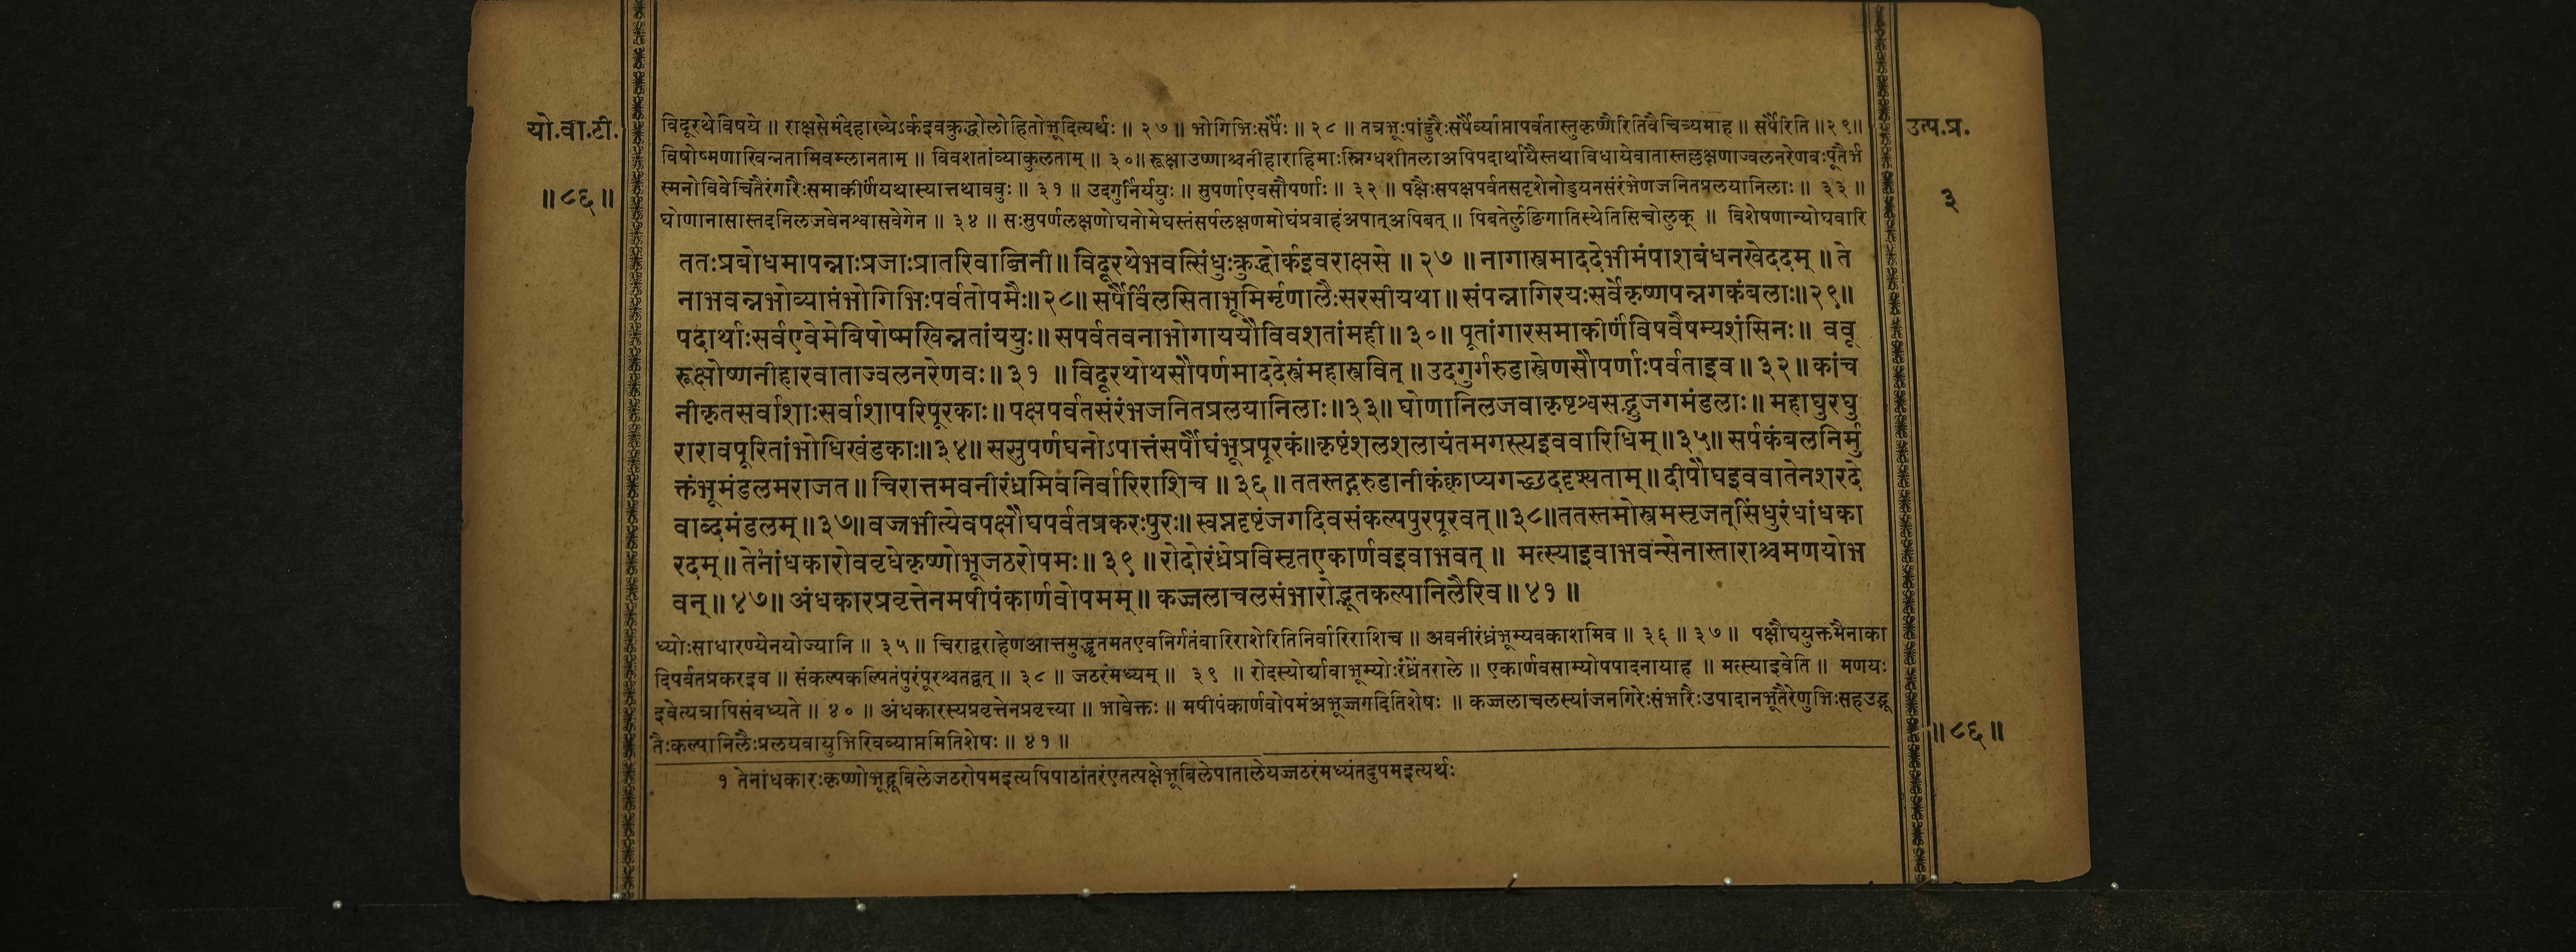 यो.वा.टी.
॥८६॥
उत्प.प्र.
३
विदूरथेविषये ॥ राक्षसेमंदेहाख्येऽर्कइवक्रुद्धोलोहितोभूदित्यर्थः ॥ २७ ॥ भोगिभिःसर्पैः ॥ २८ ॥ तत्रभूःपांडुरैःसर्पैर्व्याप्तापर्वतास्तुकृष्णैरितिवैचित्र्यमाह ॥ सर्पैरिति ॥२९॥
विषोष्मणाखिन्नतामिवम्लानताम् ॥ विवशतांव्याकुलताम् ॥ ३०॥ रूक्षाउष्णाश्चनीहाराहिमाःस्निग्धशीतलाअपिपदार्थायैस्तथाविधायेवातास्तल्लक्षणाज्वलनरेणवःपूतैर्भ
स्मनोविवेचितैरंगारैःसमाकीर्णंयथास्यात्तथाववुः ॥ ३१ ॥ उदगुर्निर्ययुः ॥ सुपर्णाएवसौपर्णाः ॥ ३२ ॥ पक्षैःसपक्षपर्वतसदृशेनोड्डयनसंरंभेणजनितप्रलयानिलाः ॥ ३३ ॥
घोणानासास्तदनिलजवेनश्वासवेगेन ॥ ३४ ॥ सःसुपर्णलक्षणोघनोमेघस्तंसर्पलक्षणमोघंप्रवाहंअपात्अपिबत् ॥ पिबतेर्लुङिगातिस्थेतिसिचोलुक् ॥ विशेषणान्योघवारि
ततःप्रबोधमापन्नाःप्रजाःप्रातरिवाब्जिनी॥ विदूरथेभवत्सिंधुःक्रुद्धोर्कइवराक्षसे ॥ २७ ॥ नागास्त्रमाददेभीमंपाशबंधनखेददम् ॥ ते
नाभवन्नभोव्याप्तंभोगिभिःपर्वतोपमैः॥२८॥ सर्पैर्विलसिताभूमिर्मृणालैःसरसीयथा॥ संपन्नागिरयःसर्वेकृष्णपन्नगकंबलाः॥२९॥
पदार्थाःसर्वएवेमेबिषोष्मखिन्नतांययुः॥ सपर्वतवनाभोगाययौविवशतांमही॥ ३०॥ पूतांगारसमाकीर्णविषवैषम्यशंसिनः॥ ववू
रूक्षोष्णनीहारवाताज्वलनरेणवः॥ ३१ ॥ विदूरथोथसौपर्णमाददेस्त्रंमहास्त्रवित् ॥ उदगुर्गरुडास्त्रेणसौपर्णाःपर्वताइव॥ ३२॥ कांच
नीकृतसर्वाशाःसर्वाशापरिपूरकाः॥ पक्षपर्वतसंरंभजनितप्रलयानिलाः॥३३॥ घोणानिलजवाकृष्टश्वसद्भुजगमंडलाः॥ महाघुरघु
रारावपूरितांभोधिखंडकाः॥३४॥ ससुपर्णघनोऽपात्तंसर्पौघंभूप्रपूरकं॥कृष्टंशलशलायंतमगस्त्यइववारिधिम्॥३५॥ सर्पकंबलनिर्मु
क्तंभूमंडलमराजत॥ चिरात्तमवनीरंध्रमिवनिर्वारिराशिच ॥ ३६॥ ततस्तद्गरुडानीकंक्वाप्यगच्छददृश्यताम्॥ दीपौघइववातेनशरदे
वाब्दमंडलम्॥३७॥ वज्रभीत्येवपक्षौघपर्वतप्रकरःपुरः॥ स्वप्नदृष्टंजगदिवसंकल्पपुरपूरवत्॥३८॥ततस्तमोस्त्रमसृजत्सिंधुरंधांधका
रदम्॥ तेनांधकारोववृधेकृष्णोभूजठरोपमः॥ ३९ ॥ रोदोरंध्रेप्रविसृतएकार्णवइवाभवत् ॥ मत्स्याइवाभवन्सेनास्ताराश्चमणयोभ
वन्॥ ४७॥ अंधकारप्रवृत्तेनमषीपंकार्णवोपमम्॥ कज्जलाचलसंभारोद्भूतकल्पानिलैरिव॥ ४१ ॥
ध्योःसाधारण्येनयोज्यानि ॥ ३५ ॥ चिराद्वराहेणआत्तमुद्धृतमतएवनिर्गतंवारिराशेरितिनिर्वारिराशिच ॥ अवनीरंध्रंभूम्यवकाशमिव ॥ ३६ ॥ ३७ ॥ पक्षौघयुक्तमैनाका
दिपर्वतप्रकरइव ॥ संकल्पकल्पितंपुरंपूरश्चतद्वत् ॥ ३८ ॥ जठरंमध्यम् ॥ ३९ ॥ रोदस्योर्द्यावाभूम्योःरंध्रेंतराले ॥ एकार्णवसाम्योपपादनायाह ॥ मत्स्याइवेति ॥ मणयः
इवेत्यत्रापिसंबध्यते ॥ ४० ॥ अंधकारस्यप्रवृत्तेनप्रवृत्त्या ॥ भावेक्तः ॥ मषीपंकार्णवोपमंअभूज्जगदितिशेषः ॥ कज्जलाचलस्यांजनगिरेःसंभारैःउपादानभूतैरेणुभिःसहउद्भू
तैःकल्पानिलैःप्रलयवायुभिरिवव्याप्तमितिशेषः ॥ ४१ ॥
॥८६॥
१ तेनांधकारःकृष्णोभूद्भूबिलेजठरोपमइत्यपिपाठांतरंएतत्पक्षेभूबिलेपातालेयज्जठरंमध्यंतदुपमइत्यर्थः